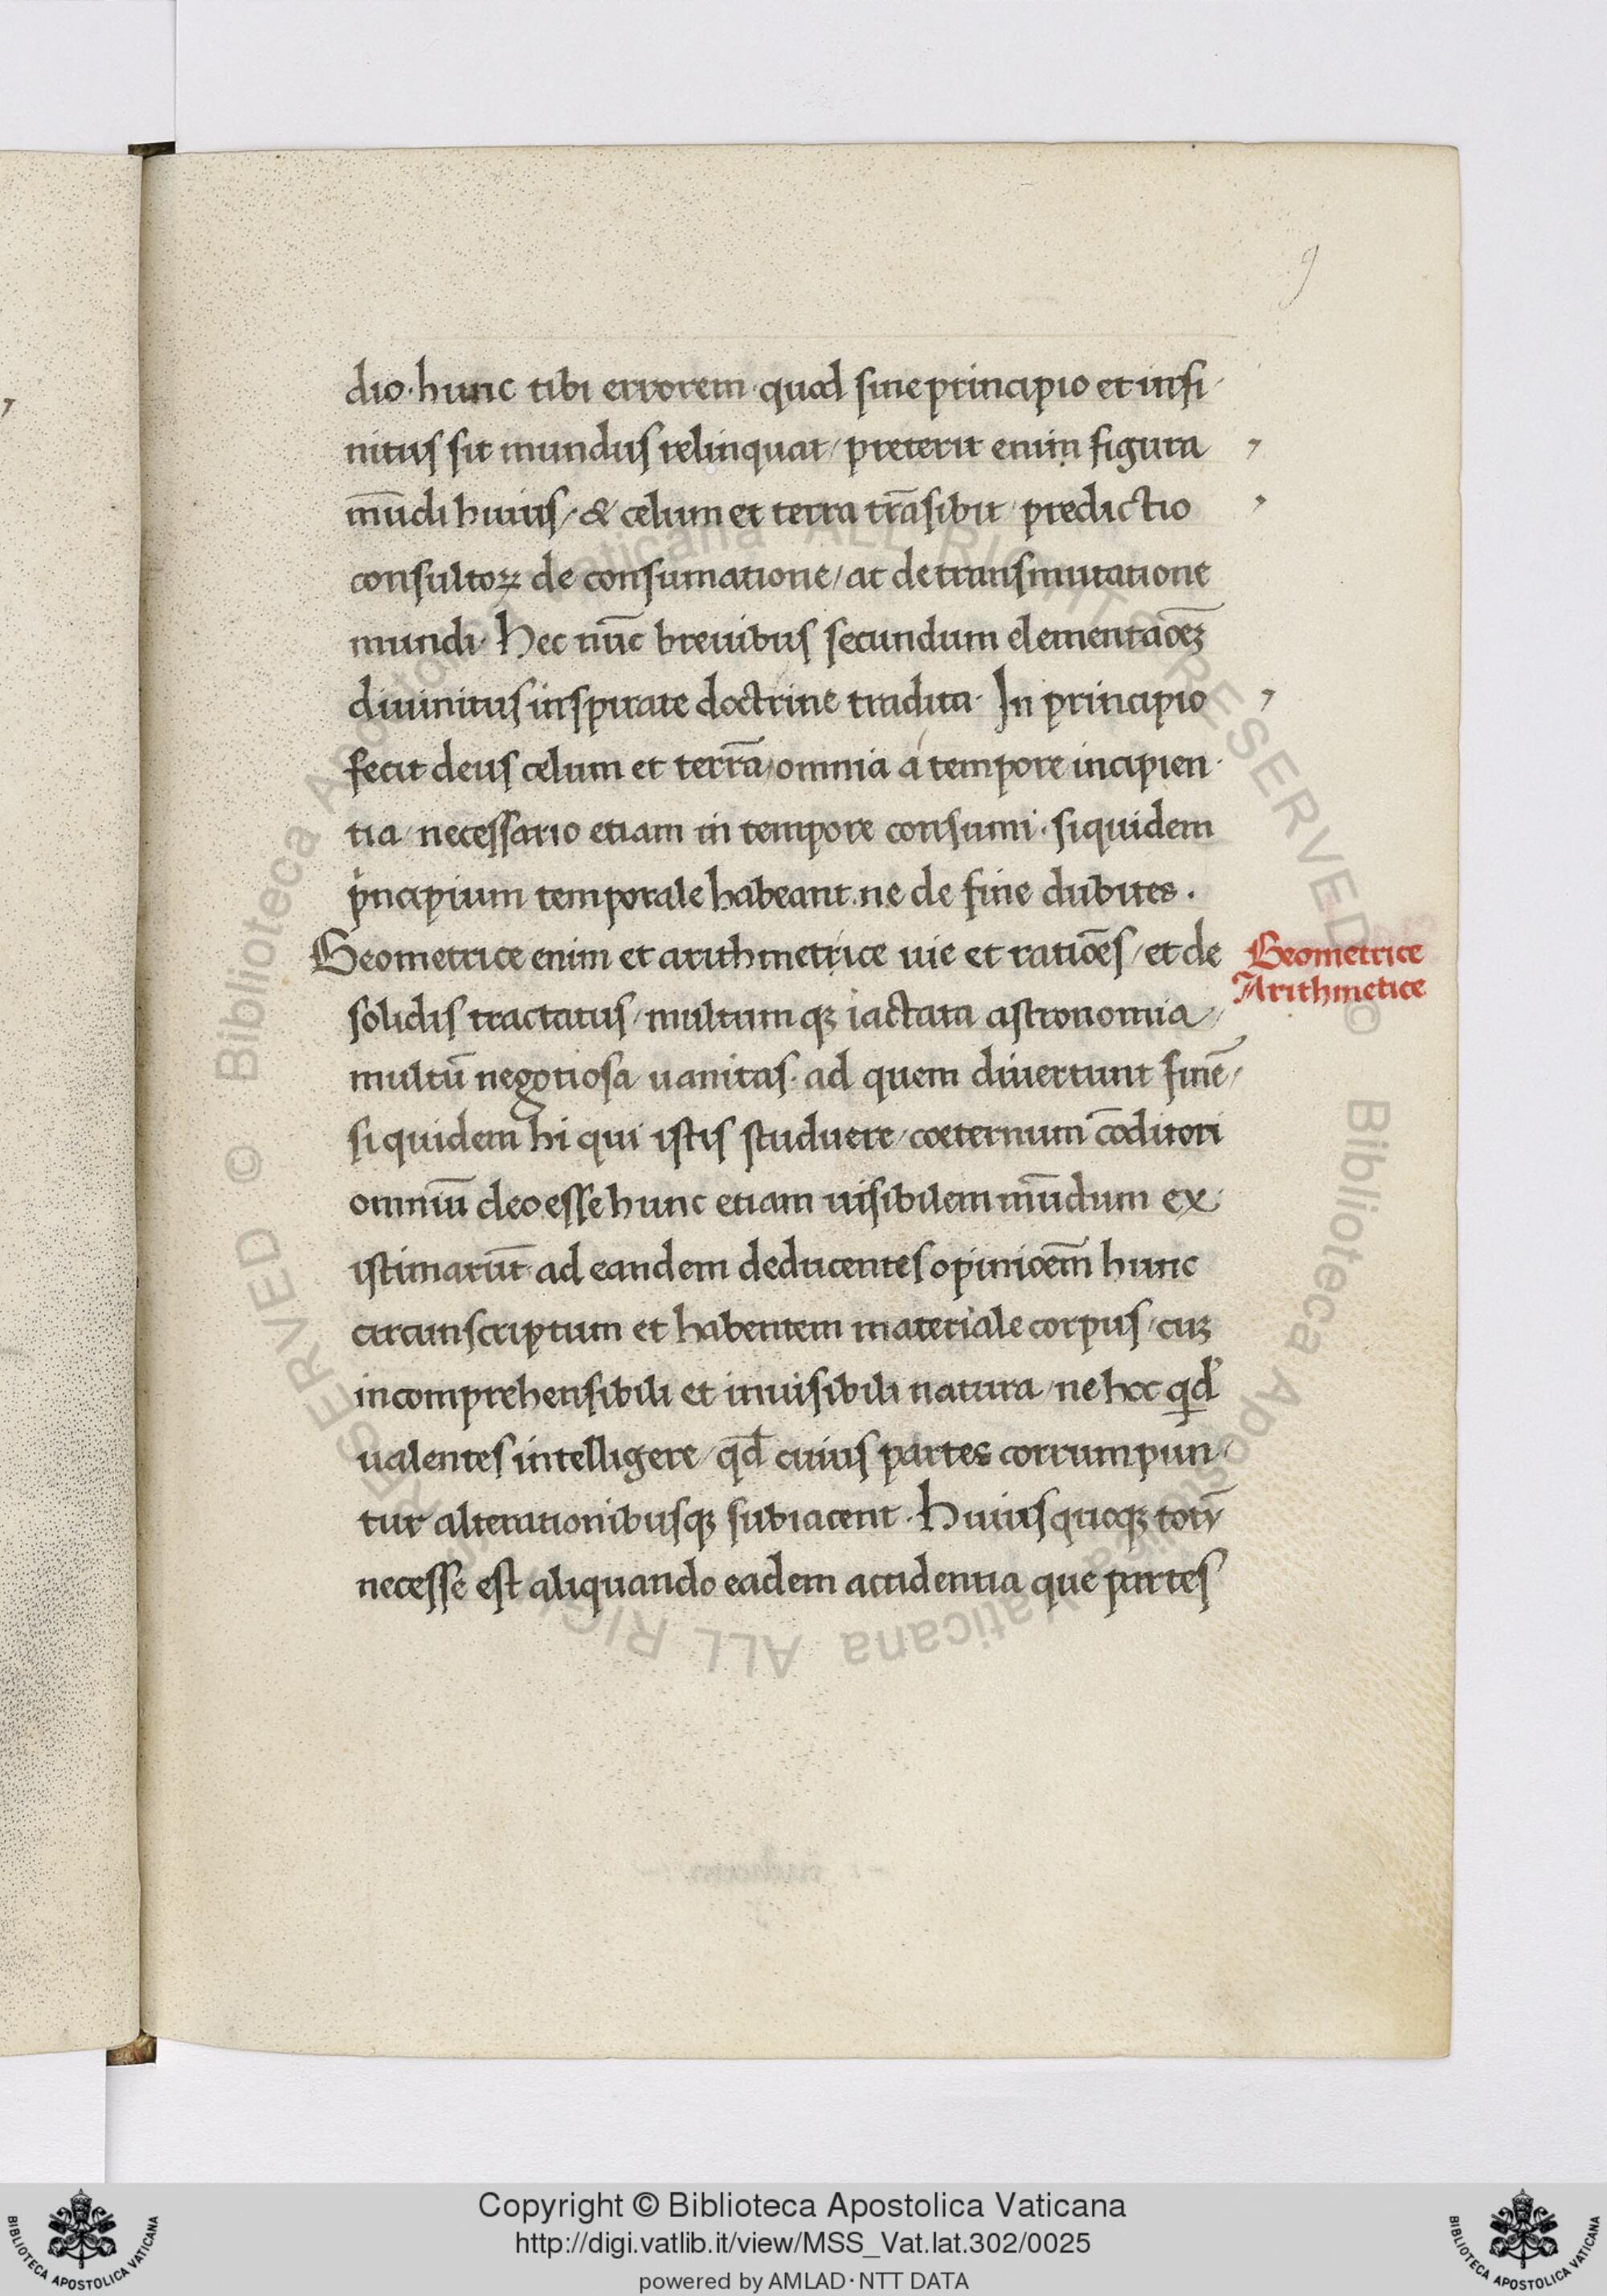 9
dio· hunc tibi errorem· quod sine principio et infi-
nitus sit mundus relinquat/ preterit enim figura
mūdi huius/ & celum et terra trāsibit/ predictio
consultoꝝ de consumatione/ at de transmutatione
mundi· Hec nūc breuibus secundum elementaōeꝫ
diuinitus inspirate doctrine tradita· In principio
fecit deus celum et terrā/ omnia a tempore incipien-
tia/ necessario etiam in tempore consumi· siquidem
pͥncipium temporale habeant· ne de fine dubites.
Geometrice enim et arithmetrice uie et ratiōes/ et de
Geometrice
Arithmetice
solidis tractatus/ multumqꝫ iactata astronomia/
multū negotiosa uanitas· ad quem diuertunt finē/
siquidem hi qui istis studuere/ coeternum cōditori
omniū deo esse hunc etiam uisibilem mūdum ex-
istimarūt· ad eandem deducentes opinioēm hunc
circunscriptum et habentem materiale corpus/ cuꝫ
incomprehensibili et inuisibili natura/ ne hoc qͥdē
ualentes intelligere/ qđ cuius partes corrumpun-
tur alterationibusqꝫ subiacent· Huius quoqꝫ toti᷒
necesse est aliquando eadem accidentia que partes
Copyright © Biblioteca Apostolica Vaticana
http://digi.vatlib.it/view/MSS_Vat.lat.302/0025
powered by AMLAD·NTT DATA
BIBLIOTECA APOSTOLICA VATICANA
BIBLIOTECA APOSTOLICA VATICANA
© Biblioteca Apostolica Vaticana ALL RIGHTS RESERVED
© Biblioteca Apostolica Vaticana ALL RIGHTS RESERVED